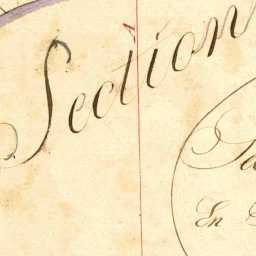 Section
En